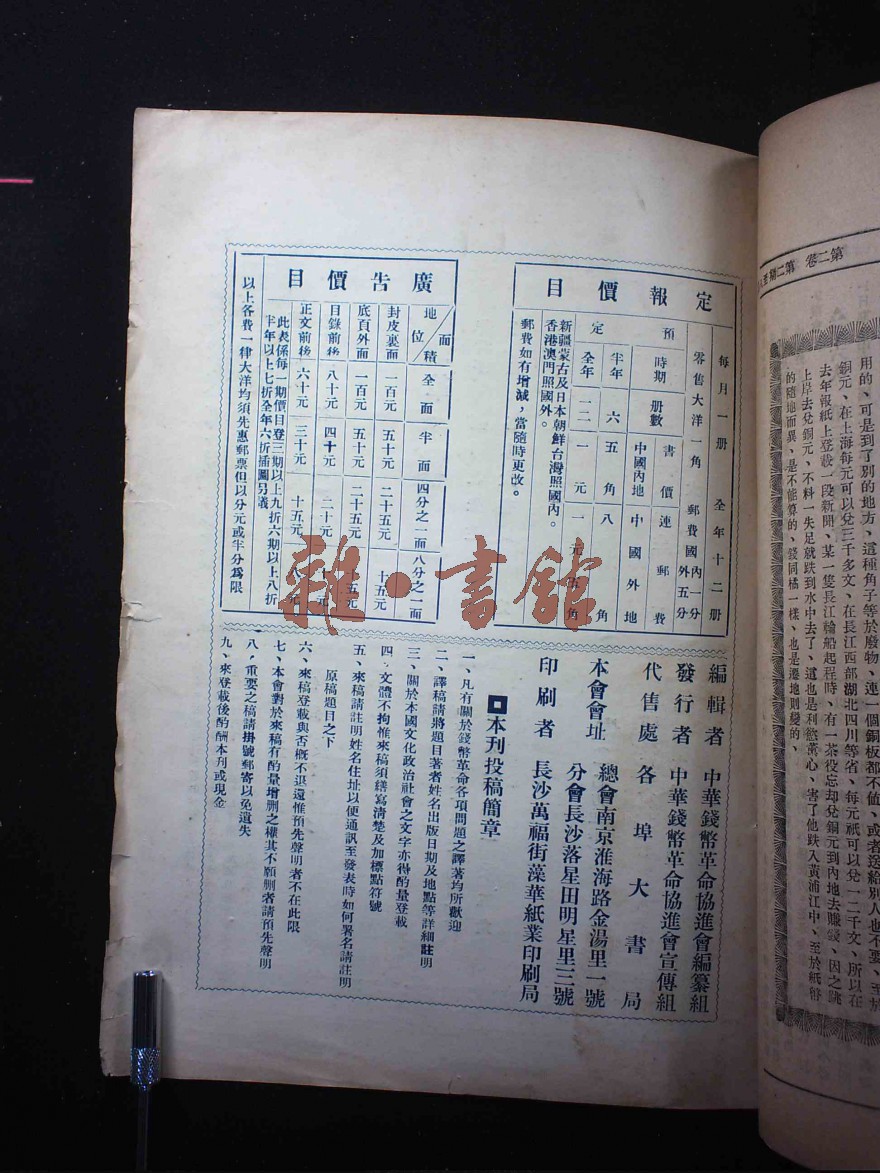 第二卷 第二期至
用的、可是到了別的地方、這種角子等於廢物、連一個銅板都不值、或者送給別人也不要、至於
銅元、在上海每元可以兌三千多文、在長江西部湖北四川等省、每元祇可以兌一二千文、所以在
去年報紙上登載一段新聞、某一隻長江輪船起程時、有一茶役忘却兌銅元到內地去賺錢、因之跳
上岸去兌銅元、不料一失足就跌到水中去了、這也是利慾薰心、害了他跌入黃浦江中、至於紙幣
的隨地而異、是不能算的、錢同橘一樣、也是遷地則變的、
定報價目
每月一册 全年十二册
零售大洋一角 郵費國內一分 國外五分
預定
時期 册數 書價連郵費
中國內地 中國外地
半年 六 五角 八角
全年 一二 一元 一元五角
新疆蒙古及日本朝鮮台灣照國內。
香港澳門照國外。
郵費如有增減，當隨時更改。
廣告價目
地位/面積 全面 半面 四分之一面 八分之一面
封皮裏面 一百元 五十元 二十五元 十五元
底頁外面 一百元 五十元 二十五元 十五元
目錄前後 八十元 四十元 二十元
正文前後 六十元 三十元 十五元 八元
此表係每一期價目登三期以上九折六期以上八折
半年以上七折全年六折插圖另議
以上各費一律大洋均須先惠郵票但以分元或半分爲限
編輯者 中華錢幣革命協進會編纂組
發行者 中華錢幣革命協進會宣傳組
代售處 各埠大書局
本會會址 總會南京淮海路金湯里一號
分會長沙落星田明星里三號
印刷者 長沙萬福街藻華紙業印刷局
本刊投稿簡章
一、凡有關於錢幣革命各項問題之譯著均所歡迎
二、譯稿請將題目著者姓名出版日期及地點等詳細註明
三、關於本國文化政治社會之文字亦得酌量登載
四、文體不拘惟來稿須繕寫清楚及加標點符號
五、來稿請註明姓名住址以便通訊至發表時如何署名請註明
原稿題目之下
六、來稿登載與否概不退還惟預先聲明者不在此限
七、本會對於來稿有酌量增刪之權其不願刪者請預先聲明
八、重要之稿請掛號郵寄以免遺失
九、來登載後酌酬本刊或現金
雜·書館